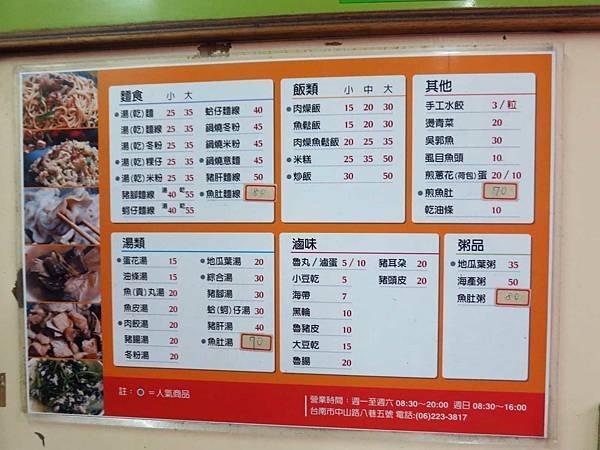 麵食 小 大
湯(乾)麵 25 35
湯(乾)麵線 25 35
湯(乾)冬粉 25 35
湯(乾)粿仔 25 35
湯(乾)米粉 25 35
豬腳麵線 湯40 乾55
蚵仔麵線 湯40 乾55
蛤仔麵線 40
鍋燒冬粉 45
鍋燒米粉 45
鍋燒意麵 45
豬肝麵線 50
魚肚麵線 80
飯類 小 中 大
肉燥飯 15 20 30
魚鬆飯 15 20 30
肉燥魚鬆飯 20 25 35
米糕 25 35 50
炒飯 30 50
其他
手工水餃 3/粒
燙青菜 20
吳郭魚 30
虱目魚頭 10
煎蔥花(荷包)蛋 20/10
煎魚肚 70
乾油條 10
湯類
蛋花湯 15
油條湯 15
魚(貢)丸湯 20
魚皮湯 20
肉餃湯 20
豬腸湯 20
冬粉湯 20
地瓜葉湯 20
綜合湯 30
豬腳湯 30
蛤(蚵)仔湯 30
豬肝湯 40
魚肚湯 70
滷味
魯丸/滷蛋 5/10
小豆乾 5
海帶 7
黑輪 10
魯豬皮 10
大豆乾 15
魯腸 20
豬耳朵 20
豬頭皮 20
粥品
地瓜葉粥 35
海產粥 50
魚肚粥 80
註：○=人氣商品
營業時間：週一至週六 08:30~20:00 週日 08:30~16:00
台南市中山路八巷五號 電話:(06)223-3817